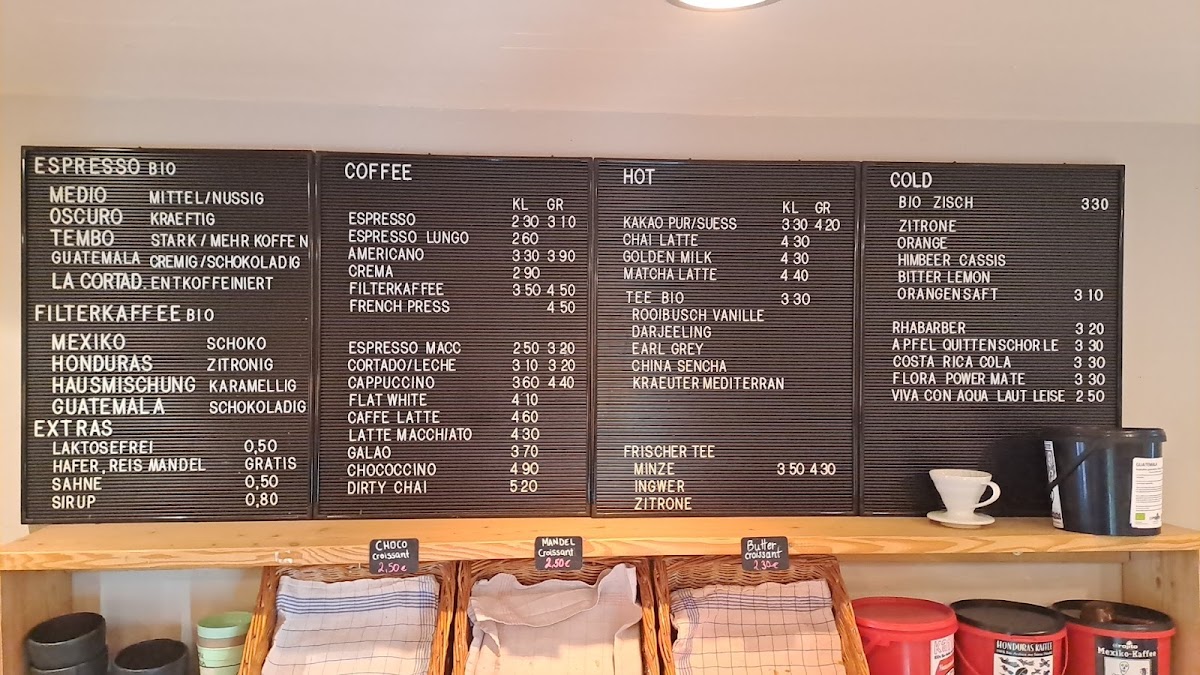 ESPRESSO BIO
MEDIO MITTEL/NUSSIG
OSCURO KRAEFTIG
TEMBO STARK/MEHR KOFFEN
GUATEMALA CREMIG/SCHOKOLADIG
LA CORTAD. ENTKOFFEINIERT
FILTERKAFFEE BIO
MEXIKO SCHOKO
HONDURAS ZITRONIG
HAUSMISCHUNG KARAMELLIG
GUATEMALA SCHOKOLADIG
EXTRAS
LAKTOSEFREI 0,50
HAFER, REIS MANDEL GRATIS
SAHNE 0,50
SIRUP 0,80
COFFEE
KL GR
ESPRESSO 2 30 3 10
ESPRESSO LUNGO 2 60
AMERICANO 3 30 3 90
CREMA 2 90
FILTERKAFFEE 3 50 4 50
FRENCH PRESS 4 50
ESPRESSO MACC 2 50 3 20
CORTADO/LECHE 3 10 3 20
CAPPUCCINO 3 60 4 40
FLAT WHITE 4 10
CAFFE LATTE 4 60
LATTE MACCHIATO 4 30
GALAO 3 70
CHOCOCCINO 4 90
DIRTY CHAI 5 20
HOT
KL GR
KAKAO PUR/SUESS 3 30 4 20
CHAI LATTE 4 30
GOLDEN MILK 4 30
MATCHA LATTE 4 40
TEE BIO 3 30
ROOIBUSCH VANILLE
DARJEELING
EARL GREY
CHINA SENCHA
KRAEUTER MEDITERRAN
FRISCHER TEE
MINZE 3 50 4 30
INGWER
ZITRONE
COLD
BIO ZISCH 3 30
ZITRONE
ORANGE
HIMBEER CASSIS
BITTER LEMON
ORANGENSAFT 3 10
RHABARBER 3 20
APFEL QUITTENSCHORLE 3 30
COSTA RICA COLA 3 30
FLORA POWER MATE 3 30
VIVA CON AQUA LAUT LEISE 2 50
CHOCO
croissant
2,50€
MANDEL
croissant
2,50€
Butter
croissant
2,30€
GUATEMALA
HONDURAS KAFFEE
Mexiko-Kaffee